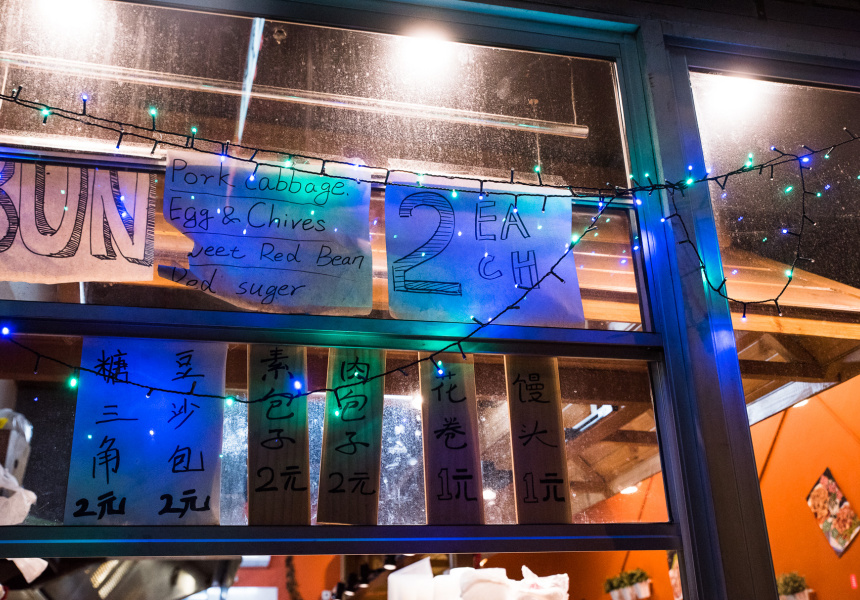 BUN
Pork Cabbage.
Egg & Chives
weet Red Bean
Red suger
2 EA
CH
糖三角 2元
豆沙包 2元
素包子 2元
肉包子 2元
花卷 1元
馒头 1元